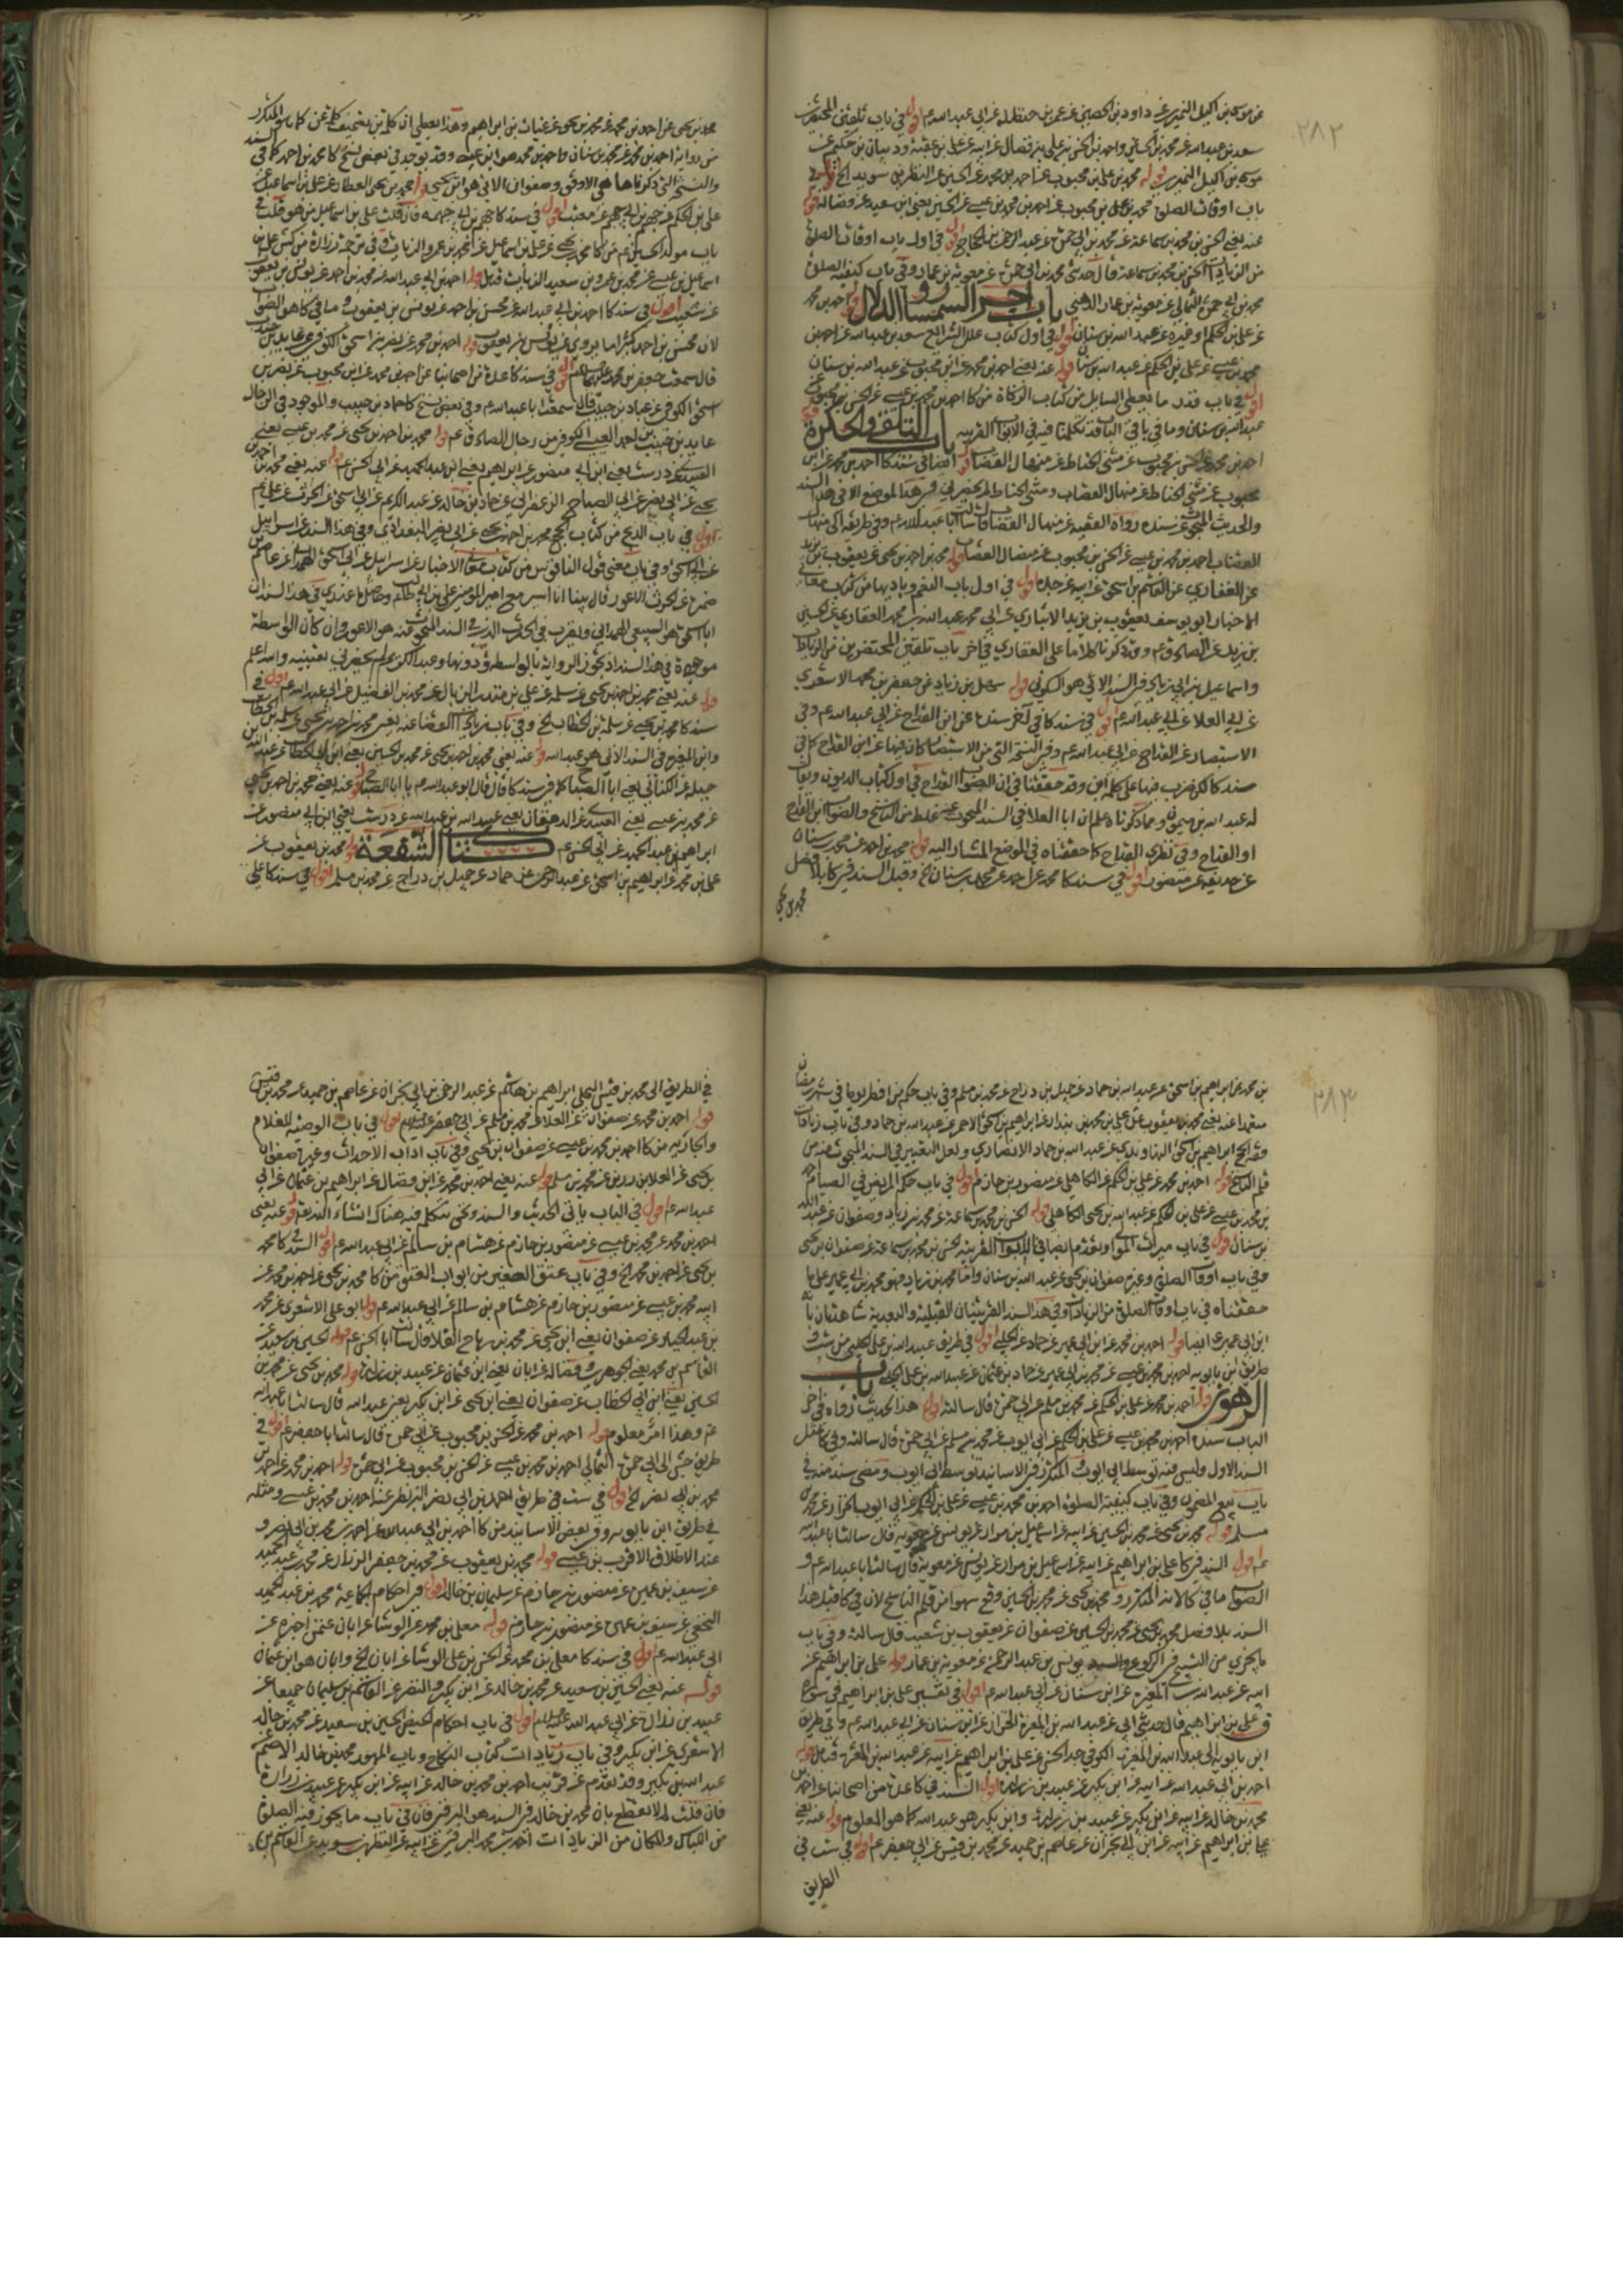 ٢٨٢
عن موسى بن اكيل النميري عن داود بن الحصين عن عمر بن حنظلة عن ابي عبد الله عم اقول في باب تلقين المحتضرين
سعد بن عبد الله عن محمد بن الحسين واحمد بن الحسن بن علي بن فضال عن ابيه عن علي بن عقبة وذبيان بن حكيم عن
موسى بن اكيل النميري قوله محمد بن علي بن محبوب عن احمد بن محمد عن الحسين عن النضر بن سويد الخ اقول في
باب اوقات الصلوة محمد بن علي بن محبوب عن احمد بن محمد بن عيسى عن الحسين يعني ابن سعيد عن فضالة قوله
عنه يعني الحسن بن محمد بن سماعة عن محمد بن ابي حمزة عن عبد الرحمن بن الحجاج اقول في اول باب اوقات الصلوة
من الزيادات الحسن بن محمد بن سماعة قال حدثني محمد بن ابي حمزة عن معوية بن عمار وفي باب كيفية الصلوة
محمد بن ابي حمزة الثمالي عن معوية بن عمار الدهني باب اجر السمسار والدلال قوله احمد بن محمد
عن علي بن الحكم وغيره عن عبد الله بن سنان اقول في اول كتاب علل الشرايع سعد بن عبد الله عن احمد بن
محمد بن عيسى عن علي بن الحكم عن عبد الله بن سنان قوله عنه يعني احمد بن محمد عن ابن محبوب عن عبد الله بن سنان
اقول في باب قدر ما يعطى السايل من كتاب الزكاة من كا احمد بن محمد بن عيسى عن الحسن بن محبوب عن
عبد الله بن سنان وما في باقي الباب قد تكلمنا فيه في الابواب القريبة باب التلقي والحكرة قوله
احمد بن محمد عن الحسن بن محبوب عن مثنى الحناط عن منهال القصاب اقول ايضا في سند كا احمد بن محمد عن ابن
محبوب عن مثنى الحناط عن منهال القصاب ومثنى الحناط لم يحضرني في هذا الموضع الا في هذا السند
والحديث المبحوث عن سنده رواه الفقيه عن منهال القصاب قال سالت ابا عبد الله عم وفي طريقه الى منهال
القصاب احمد بن محمد بن عيسى عن الحسن بن محبوب عن منهال القصاب قوله محمد بن احمد بن يحيى عن يعقوب بن يزيد
عن الغفاري عن القسم بن اسحق عن ابيه عن جده اقول في اول باب النعم وزيادتها من كتاب معاني
الاخبار ابو يوسف يعقوب بن يزيد الانباري عن ابي محمد عبد الله بن محمد الغفاري عن الحسين
بن زيد عن الصادق عم وقد ذكرنا كلاما على الغفاري في اخر باب تلقين المحتضرين من الزيادات
واسماعيل بن ابي زياد في السند الاتي هو السكوني قوله سهل بن زياد عن جعفر بن محمد الاشعري
عن ابي العلا عن ابي عبد الله عم اقول في سند كا في آخر سنده عن ابن القداح عن ابي عبد الله عم وفي
الاستبصار عن القداح عن ابي عبد الله عم وفي النسخة التي من الاستبصار كان فيها عن ابن القداح كما في
سند كا لكن ضرب فيها على كلمة ابن وقد حققنا في ان الصواب القداح في اول كتاب الديون ويقال
له عبد الله بن ميمون ومما ذكرناه علم ان ابا العلا في السند المبحوث عنه غلط من الناسخ والصواب ابن القداح
او القداح وفي نظري القداح كما حققناه في الموضع المشار اليه قوله محمد بن احمد عن محمد بن سنان
عن حذيفة بن منصور اقول في سند كا محمد عن احمد عن محمد بن سنان الخ وقبل السند في كا بلا فصل
محمد بن يحيى
محمد بن يحيى عن احمد بن محمد عن محمد بن يحيى عن غياث بن ابراهيم وهذا يعطي ان
من رواية احمد بن محمد عن محمد بن سنان واحمد بن محمد هو ابن عيسى وقد يوجد في بعض نسخ كا محمد بن احمد كما في السند
والنسخ التي ذكرناها هي الاوفق وصفوان الاتي هو ابن يحيى قوله محمد بن يحيى العطار عن علي بن اسماعيل عن
علي بن الحكم عن جهم بن ابي جهم عن معتب اقول في سند كا جهم بن ابي جهمة فان قلت علي بن اسماعيل من هو قلت في
باب مولد الحسين عم من كا محمد بن يحيى عن علي بن اسماعيل عن محمد بن عمرو الزيات وفي ترجمة زرارة من كش علي بن
اسماعيل بن عيسى عن محمد بن عمرو بن سعيد الزيات فتامل قوله احمد بن ابي عبد الله عن محمد بن احمد عن يونس بن يعقوب
عن شعيب اقول في سند كا احمد بن ابي عبد الله عن محسن بن احمد عن يونس بن يعقوب وما في كا هو الصواب
لان محسن بن احمد كثيرا ما يروي عن يونس بن يعقوب قوله احمد بن محمد عن نصر بن اسحق الكوفي عن عباد بن حبيب
قال سمعت جعفر بن محمد عليهما السلام اقول في سند كا عدة من اصحابنا عن احمد بن محمد عن ابن محبوب عن نصر بن
اسحق الكوفي عن عباد بن حبيب قال سمعت ابا عبد الله عم وفي بعض نسخ كا حماد بن حبيب والموجود في الرجال
عابد بن حبيب بن احمد العبسي الكوفي من رجال الصادق عم قوله محمد بن احمد بن يحيى عن محمد بن عيسى يعني
العبيدي عن درست يعني ابن ابي منصور عن ابراهيم يعني ابن عبد الحميد عن ابي الحسن عم قوله عنه يعني محمد بن احمد بن
يحيى عن ابي نصر عن ابي الصباح الزعفراني عن خالد عن عبد الكريم عن ابي اسحق عن الحرث عن علي عم
اقول في باب الذبح من كتاب الحج محمد بن احمد بن يحيى عن ابي نصر البغدادي وفي هذا السند عن اسرائيل
عن ابي اسحق وفي باب معنى قول الناقوس من كتاب معاني الاخبار عن اسرائيل عن ابي اسحق الهمداني عن عاصم بن
ضمرة عن الحرث الاعور قال بينا انا اسير مع امير المؤمنين علي بن ابي طالب عم وحاصل ما عندي في هذا السند ان
ابا اسحق هو السبيعي الهمداني ويقرب في الحارث الذي في السند المبحوث عنه هو الاعور وان كان الواسطة
موجودة في هذا السند اذ يجوز الرواية بالواسطة ودونها وعبد الكريم لم يحضرني تعيينه والله اعلم
قوله عنه يعني محمد بن احمد بن يحيى عن سلمة عن علي بن منذر الزبال عن محمد بن الفضيل عن ابي عبد الله عم اقول في
سند كا محمد بن يحيى عن سلمة بن الخطاب الخ وفي باب القضا عنه يعني محمد بن احمد بن يحيى عن سلمة بن الخطاب
وابن المغيرة في السند الاتي هو عبد الله قوله عنه يعني محمد بن احمد بن يحيى عن محمد بن الحسين يعني ابن ابي الخطاب عن عبد الله بن
جبلة عن الكناني يعني ابا الصباح كما في سند كا قال قال ابو عبد الله عم يا ابا الصباح قوله عنه يعني محمد بن احمد بن يحيى
عن محمد بن عيسى يعني العبيدي عن الدهقان يعني عبيد الله بن عبد الله عن درست يعني ابن ابي منصور عن
ابراهيم بن عبد الحميد عن ابي الحسن عم كتاب الشفعة قوله محمد بن يعقوب عن
علي بن محمد عن ابراهيم بن اسحق عن عبد الله بن حماد عن جميل بن دراج عن محمد بن مسلم اقول في سند كا علي
٢٨٣
بن محمد عن ابراهيم بن اسحق عن عبد الله بن حماد عن جميل بن دراج عن محمد بن مسلم وفي باب حكم من افطر يوما في شهر رمضان
متعمدا عنه يعني محمد بن يعقوب عن علي بن محمد بن بندار عن ابراهيم بن اسحق الاحمر عن عبد الله بن حماد وفي باب زيادات
فقه الحج ابراهيم بن اسحق النهاوندي عن عبد الله بن حماد الانصاري ولعل التغيير في السند المبحوث عنه من
قلم الناسخ قوله احمد بن محمد عن علي بن الحكم عن الكاهلي عن منصور بن حازم اقول في باب حكم المريض في الصيام
بن محمد بن عيسى عن علي بن الحكم عن عبد الله بن يحيى الكاهلي قوله الحسن بن محمد بن سماعة عن محمد بن زياد وصفوان عن عبد الله
بن سنان اقول في باب ميراث الموالي وتقدم ايضا في الابواب القريبة الحسن بن محمد بن سماعة عن صفوان بن يحيى
وفي باب اوقات الصلوة وغيره صفوان بن يحيى عن عبد الله بن سنان واما محمد بن زياد فهو محمد بن ابي عمير على ما
حققناه في باب اوقات الصلوة من الزيادات وفي هذا السند القرينتان القبلية والبعدية شاهدتان بانه
ابن ابي عمير ايضا قوله احمد بن محمد عن ابن ابي عمير عن حماد عن الحلبي اقول في طريق عبيد الله بن علي الحلبي من ست و
طريق ابن بابويه احمد بن محمد بن عيسى عن محمد بن ابي عمير عن حماد بن عثمان عن عبيد الله بن علي الحلبي باب
الرهون قوله احمد بن محمد عن علي بن الحكم عن محمد بن مسلم عن ابي حمزة قال سالته اقول هذا الحديث رواه في اخر
الباب سنده احمد بن محمد بن عيسى عن علي بن الحكم عن ابي ايوب عن محمد بن مسلم عن ابي حمزة قال سالته وفي كا مثل
السند الاول وليس فيه توسط ابي ايوب والمتكرر في الاسانيد توسط ابي ايوب ومضى سند منه في
باب بيع المضمون وفي باب كيفية الصلوة احمد بن محمد بن عيسى عن علي بن الحكم عن ابي ايوب الخزاز عن محمد بن
مسلم قوله محمد بن يحيى عن محمد بن الحسين عن ابيه عن اسماعيل بن مرار عن يونس عن معوية قال سالت ابا عبد الله
عم اقول السند في كا علي بن ابراهيم عن ابيه عن اسماعيل بن مرار عن يونس عن معوية قال سالت ابا عبد الله عم و
الصواب ما في كا لانه المتكرر و محمد بن يحيى عن محمد بن الحسين وقع سهوا من قلم الناسخ لان في كا قبل هذا
السند بلا فصل محمد بن يحيى عن محمد بن الحسين عن صفوان عن يعقوب بن شعيب قال سالته وفي باب
ما يجزي من التسبيح في الركوع والسجود يونس بن عبد الرحمن عن معوية بن عمار قوله علي بن ابراهيم عن
ابيه عن عبد الله بن المغيرة عن ابن سنان عن ابي عبد الله عم اقول في تفسير علي بن ابراهيم في سورة
ق علي بن ابراهيم قال حدثني ابي عن عبد الله بن المغيرة الخزاز عن ابن سنان عن ابي عبد الله عم وفي طريق
ابن بابويه الى عبد الله بن المغيرة الكوفي جد الحسن بن علي عن ابراهيم عن ابيه عن عبد الله بن المغيرة فتامل قوله
احمد بن ابي عبد الله عن ابيه عن ابن بكير عن عبيد بن زرارة اقول السند في كا عدة من اصحابنا عن احمد بن
محمد بن خالد عن ابيه عن ابن بكير عن عبيد بن زرارة وابن بكير هو عبد الله كما هو المعلوم قوله عنه يعني
علي بن ابراهيم عن ابيه عن ابن ابي نجران عن عاصم بن حميد عن محمد بن قيس عن ابي جعفر عم اقول في ست في
الطريق
في الطريق الى محمد بن قيس البجلي ابراهيم بن هاشم عن عبد الرحمن بن ابي نجران عن عاصم بن حميد عن محمد بن قيس
قوله احمد بن محمد عن صفوان عن العلا عن محمد بن مسلم عن ابي جعفر عليه السلام اقول في باب الوصية للغلام
والجارية من كا احمد بن محمد بن عيسى عن صفوان بن يحيى وفي باب اداب الاحداث وغيره صفوان
بن يحيى عن العلا بن رزين عن محمد بن مسلم قوله عنه يعني احمد بن محمد عن ابن فضال عن ابراهيم بن عثمان عن ابي
عبد الله عم اقول في الباب ياتي الحديث والسند ونحن نتكلم فيه هناك انشاء الله تع قوله عنه يعني
احمد بن محمد عن محمد بن عيسى عن منصور بن حازم عن هشام بن سالم عن ابي عبد الله عم اقول السند في كا محمد
بن يحيى عن احمد بن محمد الخ وفي باب عتق الصغير من ابواب العتق من كا محمد بن يحيى عن احمد بن محمد عن
ابيه محمد بن عيسى عن منصور بن حازم عن هشام بن سالم عن ابي عبد الله عم قوله ابو علي الاشعري عن محمد
بن عبد الجبار عن صفوان يعني ابن يحيى عن محمد بن رباح القلا قال سالت ابا الحسن عم قوله الحسين بن سعيد عن
القاسم بن محمد يعني الجوهري وفضالة عن ابان يعني ابن عثمان عن عبيد بن زرارة قوله محمد بن يحيى عن محمد بن
الحسين يعني ابن ابي الخطاب عن صفوان يعني ابن يحيى عن ابن بكير يعني عبد الله قال سالت ابا عبد الله
عم وهذا امر معلوم قوله احمد بن محمد عن الحسن بن محبوب عن ابي حمزة قال سالت ابا جعفر عم اقول في
طريق جش الى ابي حمزة الثمالي احمد بن محمد بن عيسى عن الحسن بن محبوب عن ابي حمزة قوله احمد بن محمد عن احمد بن
محمد بن ابي نصر الخ اقول في ست في طريق احمد بن ابي نصر البزنطي عنه احمد بن محمد بن عيسى ومثله
في طريق ابن بابويه وفي بعض الاسانيد من كا احمد بن ابي عبد الله عن احمد بن محمد بن ابي نصر و
عند الاطلاق الاقرب بن عيسى قوله محمد بن يعقوب عن محمد بن جعفر الرزاز عن محمد بن عبد الحميد
عن سيف بن عميرة عن منصور بن حازم عن سليمان بن خالد اقول في احكام الجماعة محمد بن عبد الحميد
النخعي عن سيف بن عميرة عن منصور بن حازم قوله معلى بن محمد عن الوشا عن ابان عمن اخبره عن
ابي عبد الله عم اقول في سند كا معلى بن محمد عن الحسن بن علي الوشا عن ابان الخ وابان هو ابن عثمان
قوله عنه يعني الحسين بن سعيد عن محمد بن خالد عن ابن بكير والنضر عن القاسم بن سليمان جميعا عن
عبيد بن زرارة عن ابي عبد الله عليه السلام اقول في باب احكام الحيض الحسين بن سعيد عن محمد بن خالد
الاشعري عن ابن بكير وفي باب زيادات كتاب النكاح وباب المهور محمد بن خالد الاصم عن
عبد الله بن بكير وقد تقدم عن قريب احمد بن محمد بن خالد عن ابيه عن ابن بكير عن عبيد بن زرارة
فان قلت لم لا يقطع بان محمد بن خالد في السند هو البرقي فان في باب ما يجوز فيه الصلوة
من اللباس والمكان من الزيادات احمد بن محمد البرقي عن ابيه عن النضر بن سويد عن القاسم بن